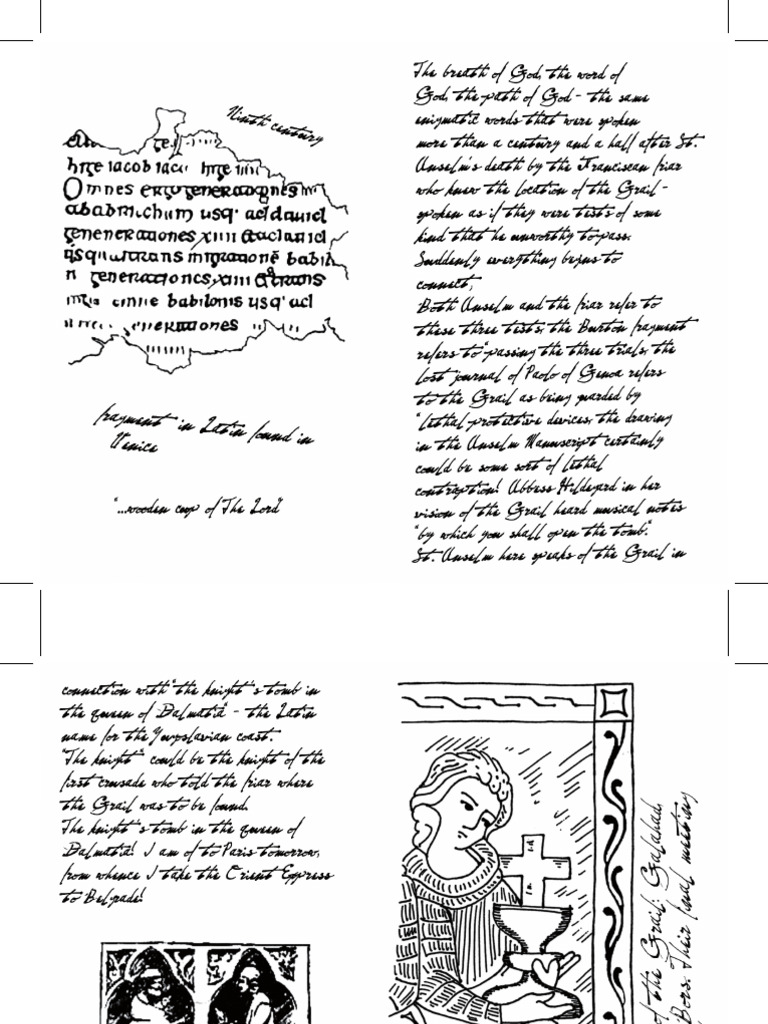 Ninth century
hrge iacob iaci hrge
Omnes ergo generationes
ab abrachum usq' ad dauid
generationes xiiii & a dauid
usq' transmigrationē babil
generationes xiiii & a trans
babilonis usq' ad
generationes
fragment in Latin found in
Venice
"...wooden cup of The Lord"
The breath of God, the word of
God, the path of God - the same
enigmatic words that were spoken
more than a century and a half after St.
Anselm's death by the Franciscan friar
who knew the location of the Grail -
spoken as if they were tests of some
kind that he unworthy to pass.
Suddenly everything begins to
connect;
Both Anselm and the friar refer to
these three tests; the Burton fragment
refers to "passing the three trials, the
lost journal of Paolo of Genoa refers
to the Grail as being guarded by
"lethal protective devices, the drawing
in the Anselm Manuscript certainly
could be some sort of lethal
contraption! Abbess Hildegard in her
vision of the Grail heard musical notes
"by which you shall open the tomb".
St. Anselm here speaks of the Grail in
connection with "the knight's tomb in
the queen of Dalmatia" - the Latin
name for the Yugoslavian coast.
"The knight" could be the knight of the
first crusade who told the friar where
the Grail was to be found.
The knight's tomb in the queen of
Dalmatia! I am of to Paris tomorrow,
from whence I take the Orient Eppress
to Belgrade!
of the Grail; Galahad,
Bors. Their final meeting